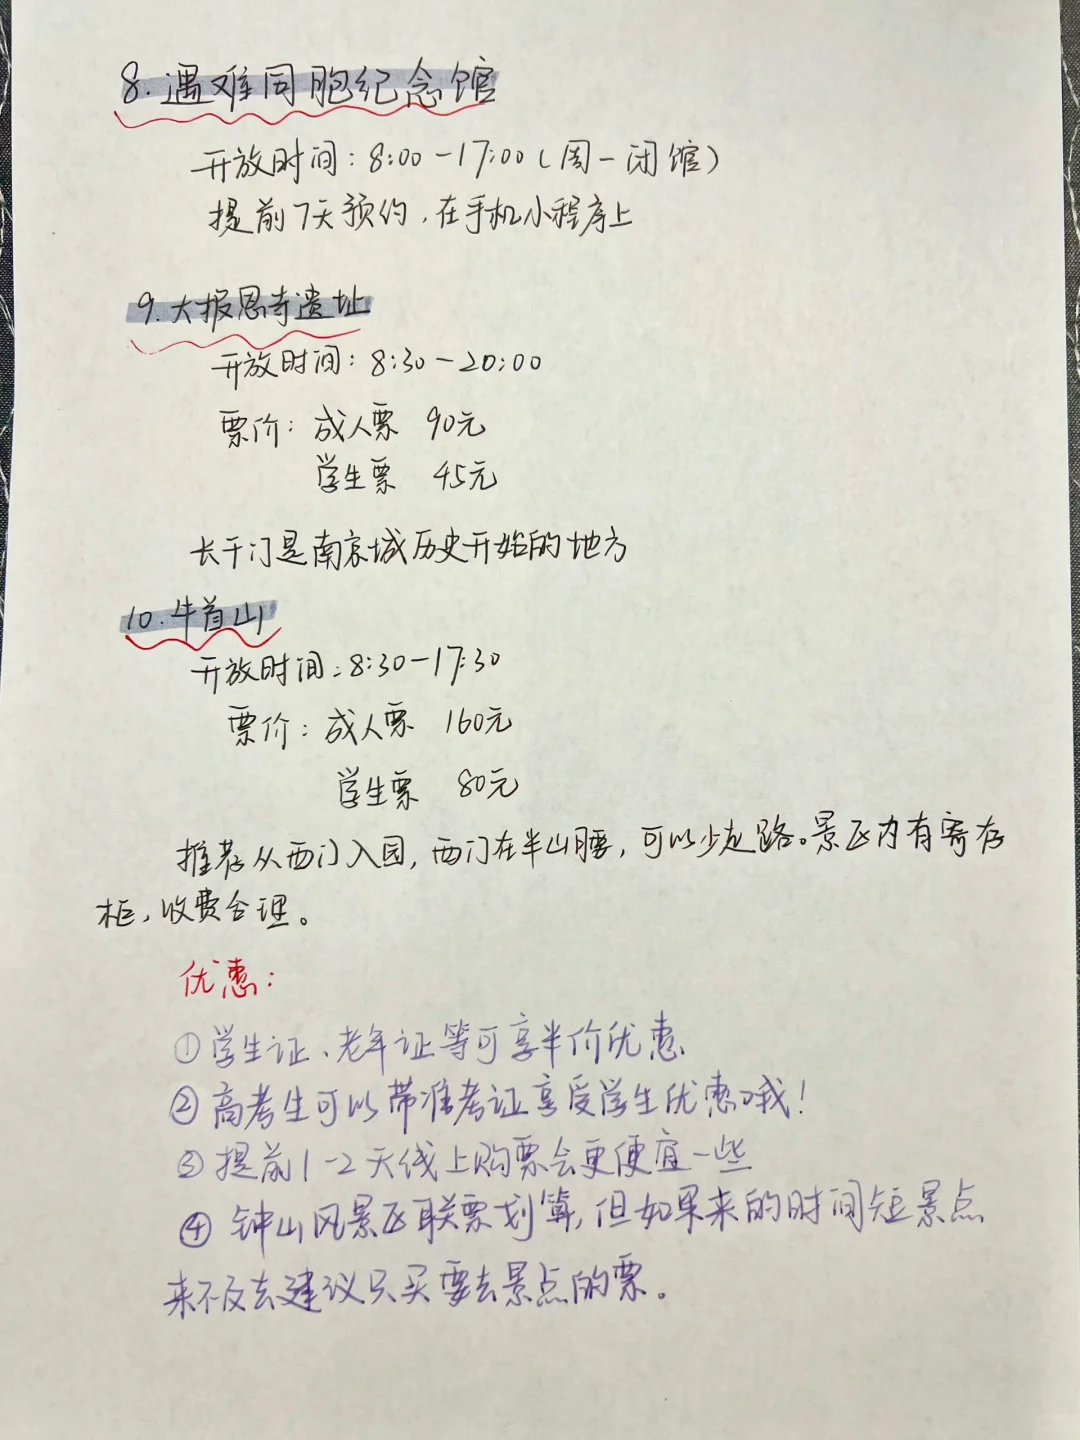 8.遇难同胞纪念馆
开放时间:8:00-17:00(周一闭馆)
提前7天预约,在手机小程序上
9.大报恩寺遗址
开放时间:8:30-20:00
票价:成人票 90元
学生票 45元
长干门是南京城历史开始的地方
10.牛首山
开放时间:8:30-17:30
票价:成人票 160元
学生票 80元
推荐从西门入园,西门在半山腰,可以少走路。景区内有寄存
柜,收费合理。
优惠:
①学生证、老年证等可享半价优惠
②高考生可以带准考证享受学生优惠哦!
③提前1-2天线上购票会更便宜一些
④钟山风景区联票划算,但如果来的时间短景点
来不及去建议只买要去景点的票。